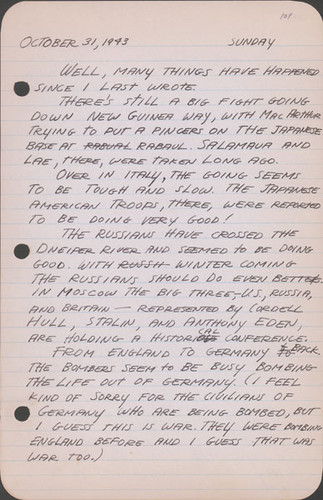 101
OCTOBER 31, 1943 SUNDAY
WELL, MANY THINGS HAVE HAPPENED
SINCE I LAST WROTE.
THERE'S STILL A BIG FIGHT GOING
DOWN NEW GUINEA WAY, WITH MACARTHUR
TRYING TO PUT A PINCERS ON THE JAPANESE
BASE AT RABUAL RABAUL. SALAMAUA AND
LAE, THERE, WERE TAKEN LONG AGO.
OVER IN ITALY, THE GOING SEEMS
TO BE TOUGH AND SLOW. THE JAPANESE
AMERICAN TROOPS, THERE, WERE REPORTED
TO BE DOING VERY GOOD!
THE RUSSIANS HAVE CROSSED THE
DNEIPER RIVER AND SEEMED TO BE DOING
GOOD. WITH RUSSH WINTER COMING
THE RUSSIANS SHOULD DO EVEN BETTER.
IN MOSCOW THE BIG THREE—U.S, RUSSIA,
AND BRITAIN — REPRESENTED BY CORDELL
HULL, STALIN, AND ANTHONY EDEN,
ARE HOLDING A HISTORICAL CONFERENCE.
FROM ENGLAND TO GERMANY & BACK
THE BOMBERS SEEM TO BE BUSY BOMBING
THE LIFE OUT OF GERMANY. (I FEEL
KIND OF SORRY FOR THE CIVILIANS OF
GERMANY WHO ARE BEING BOMBED, BUT
I GUESS THIS IS WAR. THEY WERE BOMBING
ENGLAND BEFORE AND I GUESS THAT WAS
WAR TOO.)